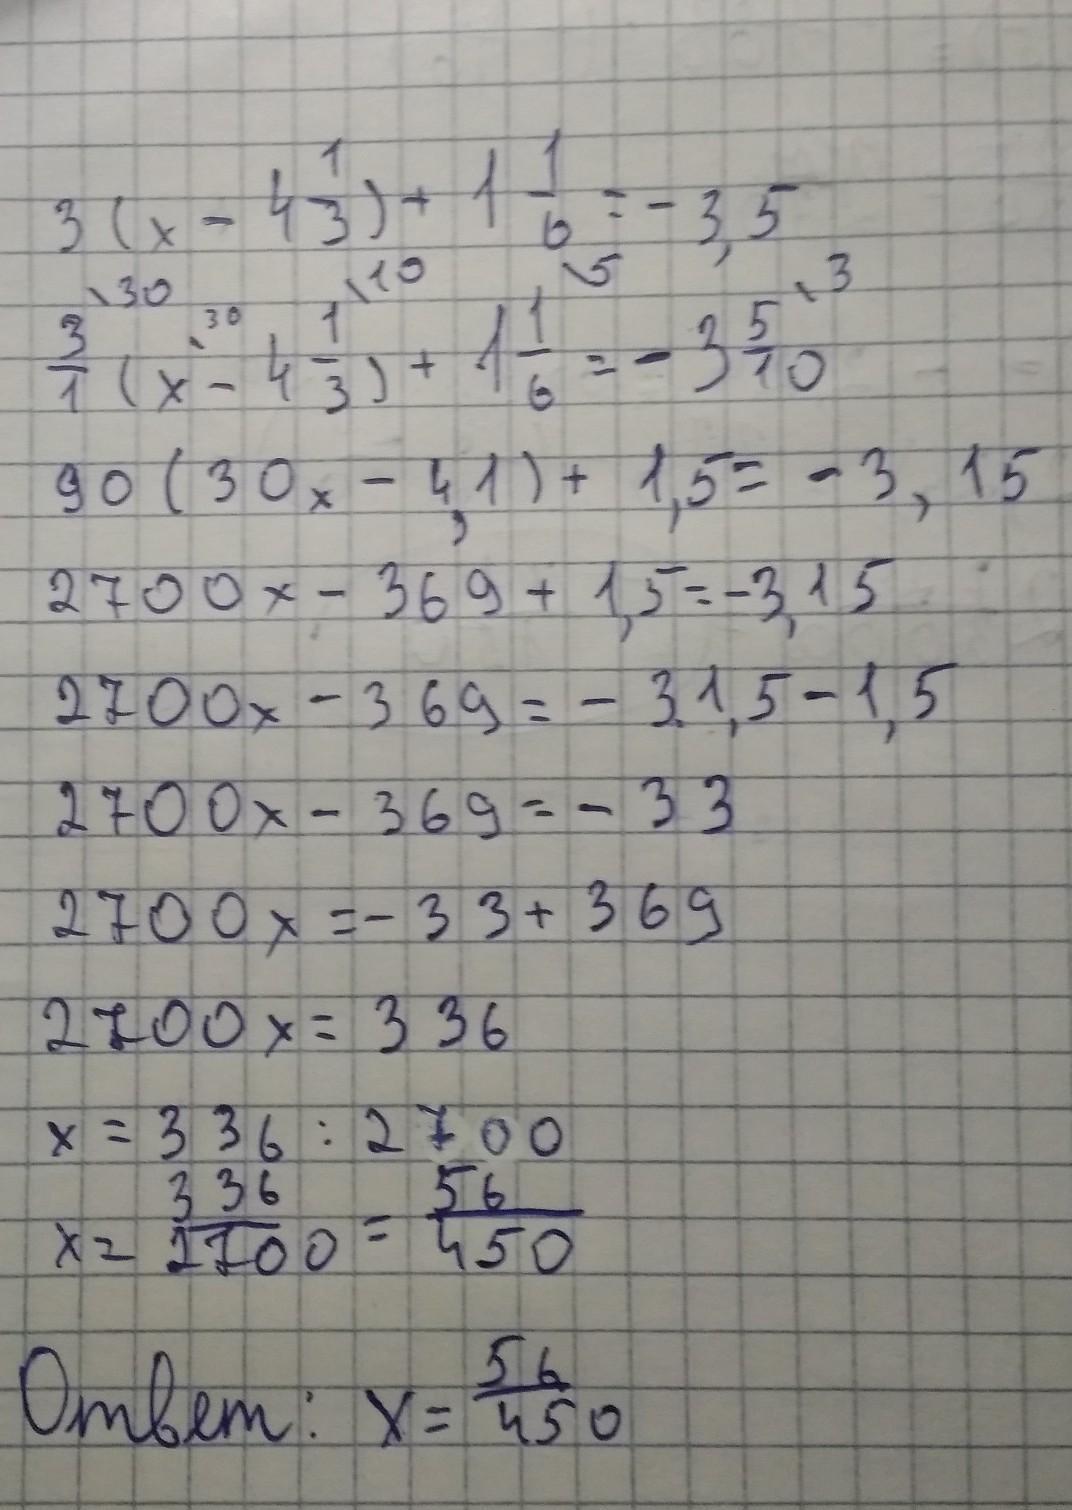 3(x - 4 1/3) + 1 1/6 = -3,5
3/1 \30 (x \30 - 4 1/3 \10) + 1 1/6 \5 = -3 5/10 \3
90(30x - 4,1) + 1,5 = -3,15
2700x - 369 + 1,5 = -3,15
2700x - 369 = -31,5 - 1,5
2700x - 369 = -33
2700x = -33 + 369
2700x = 336
x = 336 : 2700
x = 336/2700 = 56/450
Ответ: x = 56/450